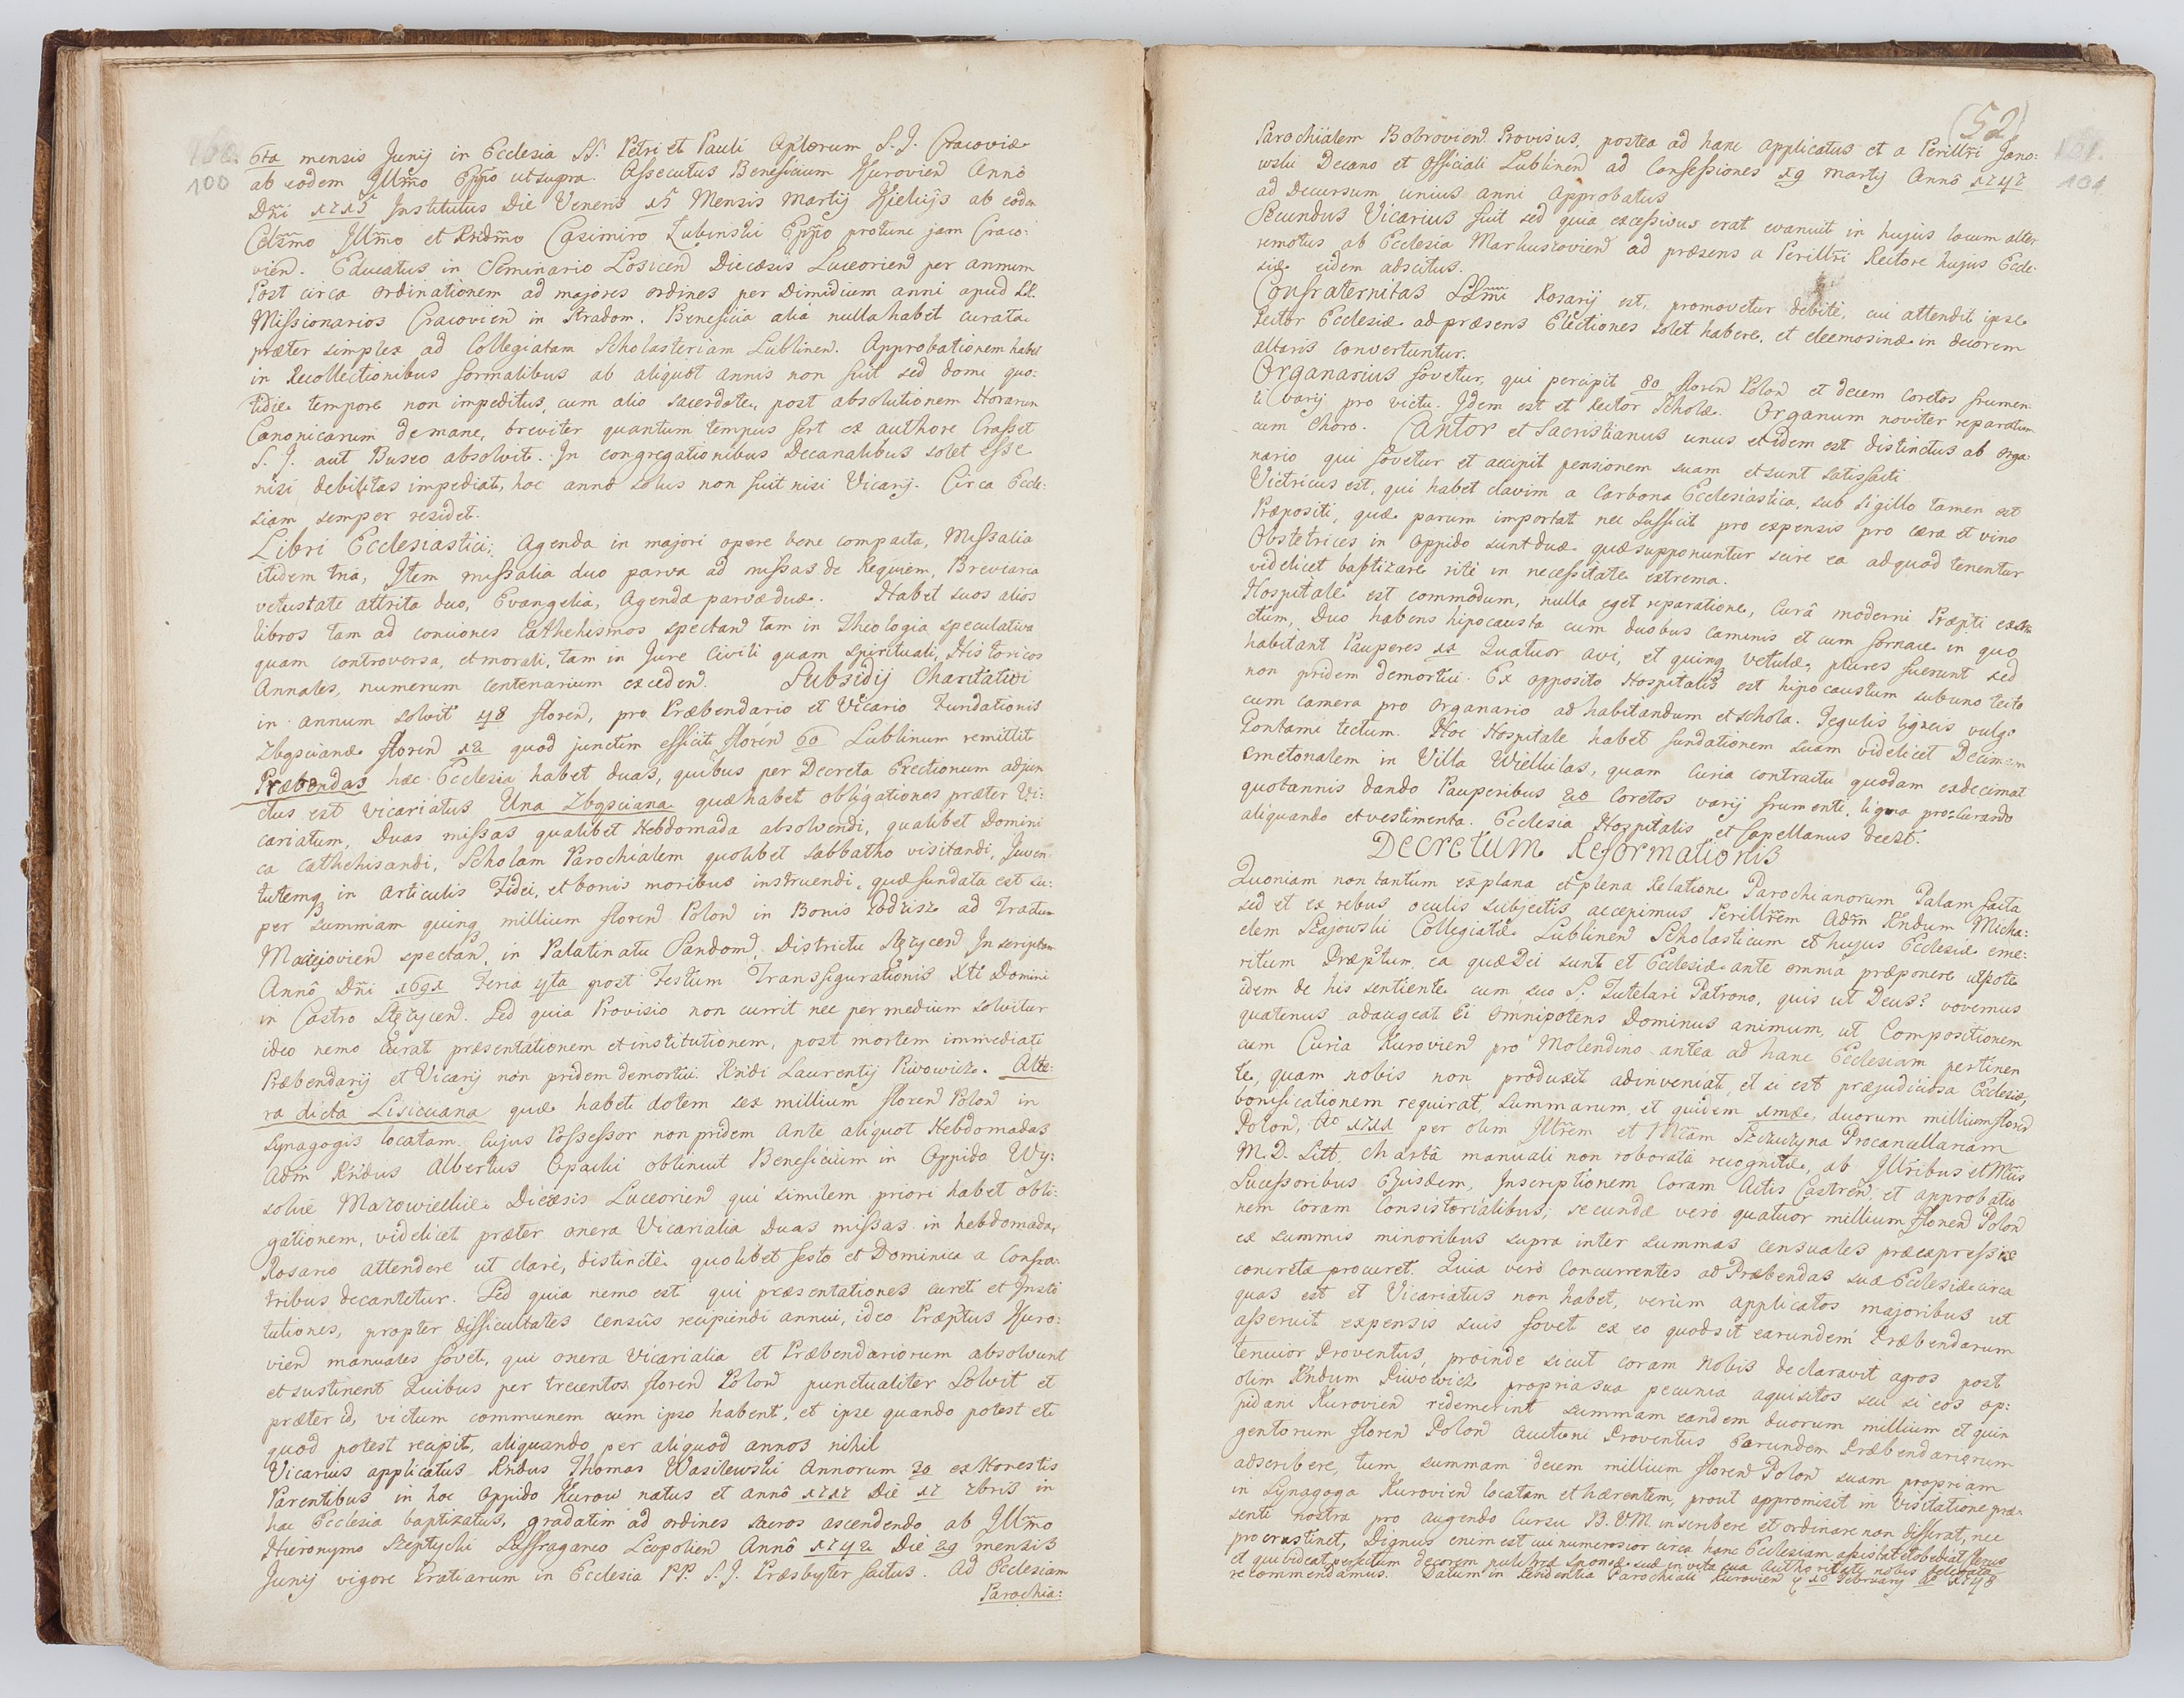 100
6ta mensis Junij in Ecclesia SS. Petri et Pauli Aplorum S. J. Cracoviæ
ab eodem Illmo Eppo utsupra. Assecutus Beneficium Kurovien Annô
Dni 1715 Institutus Die Veneris 15 Mensis Martij Kielcijs ab eodem
Celsmo Illmo et Rndmo Casimiro Łubinski Eppo protunc jam Craco:
vien. Educatus in Seminario Łosicen Diecæsis Luceorien per annum
Post circa ordinationem ad majores ordines per Dimidium anni apud RR.
Missionarios Cracovien in Stradom. Beneficia alia nulla habet curata
præter simplex ad Collegiatam Scholasteriam Lublinen. Approbationem habet
in Recollectionibus formalibus ab aliquot annis non fuit sed domi quo:
tidie tempore non impeditus, cum alio sacerdote, post absolutionem Horarum
Canonicarum demane, breviter quantum tempus fert ex authore Crasset
S. J. aut Buseo absolvit. In congregationibus Decanalibus solet esse
nisi debilitas impediat, hoc annô solus non fuit nisi Vicarij. Circa Eccle:
siam semper residet.
Libri Ecclesiastici; Agenda in majori opere bene compacta, Missalia
itidem tria, Item missalia duo parva ad missas de Requiem, Breviaria
vetustate attrita duo, Evangelia, Agendæ parvæ duæ. Habet suos alios
libros tam ad conciones Cathehismos spectan tam in Theologia speculativa
quam controversa, et morali, tam in Jure Civili quam spirituali, Historicos
Annales, numerum centenarium exceden. Subsidij Charitativi
in annum solvit 48 floren, pro Præbendario et Vicario Fundationis
Zbąscianæ floren 12 quod junctim efficit floren 60 Lublinum remittit
Præbendas hæc Ecclesia habet duas, quibus per Decreta Erectionum adjun
ctus est Vicariatus Una Zbąsciana quæ habet obligationes præter Vi:
cariatum, Duas missas qualibet Hebdomada absolvendi, qualibet Domini
ca cathehisandi, Scholam Parochialem quolibet sabbatho visitandi, Juven:
tutemq in articulis Fidei, et bonis moribus instruendi, quæ fundata est su:
per summam quinq millium floren Polon in Bonis Podzisz ad Tractum
Maciejovien spectan, in Palatinatu Sandom, Districtu Stęzycen, Inscriptam
Annô Dni 1691 Feria 4ta post Festum Transfigurationis Xti Domini
in Castro Stęzycen. Sed quia Provisio non currit nec per medium solvitur
ideo nemo curat præsentationem et institutionem, post mortem immediati
Præbendarij et Vicarij non pridem demortui Rndi Laurentij Piwowicz. Alte:
ra dicta Lisiciana quæ habet dotem sex millium floren Polon in
Synagogis locatam. Cujus Possessor non pridem Ante aliquot Hebdomadas
Adm Rndus Albertus Opacki obtinuit Beneficium in Oppido Wy:
sokie Mazowieckie Diecæsis Luceorien qui similem priori habet obli:
gationem, videlicet præter onera Vicarialia Duas missas in hebdomada,
Rosario attendere ut clare, distincte quolibet festo et Dominica a Confra:
tribus decantetur. Sed quia nemo est qui præsentationes curet et Insti
tutiones, propter difficultates censûs recipiendi annui, ideo Præptus Kuro:
vien manuales fovet, qui onera Vicarialia et Præbendariorum absolvunt
et sustinent Quibus per trecentos floren Polon punctualiter Solvit et
præter id, victum communem cum ipso habent, et ipse quando potest et
quod potest recipit, aliquando per aliquod annos nihil
Vicarius applicatus Rndus Thomas Wasilewski Annorum 30 ex Honestis
Parentibus in hoc Oppido Kurow natus et annô 1717 Die 17 Xbris in
hac Ecclesia baptizatus, gradatim ad ordines sacros ascendendo ab Illmo
Hieronymo Szeptycki Suffraganeo Leopolien Annô 1742 Die 29 mensis
Junij vigore Gratiarum in Ecclesia PP. S. J. Præsbyter factus. Ad Ecclesiam
Parochia:
(52)
101.
101
Parochialem Bobrovien Provisus, postea ad hanc Applicatus et a Perillri Jano:
wski Decano et Officiali Lublinen ad Confessiones 19 Martij Annô 1747
ad Decursum unius anni Approbatus
Secundus Vicarius fuit sed quia excessivus erat evanuit in hujus locum alter
remotus ab Ecclesia Markuszovien ad præsens a Perillri Rectore hujus Eccle:
siæ eidem adscitus.
Confraternitas SSmi Rosarij est, promovetur debite, cui attendit ipse
Rector Ecclesiæ ad præsens Electiones solet habere, et eleemosinæ in decorem
altaris convertuntur.
Organarius fovetur, qui percipit 80 floren Polon et decem coretos frumen
ti varij pro victu. Idem est et Rector Scholæ. Organum noviter reparatum
cum Choro. Cantor et Sacristianus unus et idem est distinctus ab Orga:
nario qui fovetur et accipit pensionem suam et sunt satisfacti
Victricus est, qui habet clavim a Carbona Ecclesiastica, sub sigillo tamen est
Præpositi, quæ parum importat nec sufficit pro expensis pro cæra et vino
Obstetrices in oppido sunt duæ quæ supponuntur scire ea ad quod tenentur
videlicet baptizare rite in necessitate extrema.
Hospitale est commodum, nulla eget reparatione, Curâ moderni Præpti exstru
ctum, Duo habens hipocausta cum duobus caminis et cum fornace in quo
habitant Pauperes 11 Quatuor avi, et quinq vetulæ, plures fuerunt sed
non pridem demortui. Ex opposito Hospitalis est hipocaustum sub uno tecto
cum camera pro Organario ad habitandum et schola. Tegulis ligneis vulgo
Gontami tectum. Hoc Hospitale habet fundationem suam videlicet Decimam
Cmetonalem in Villa Wielkilas, quam Curia contractu quodam exdecimat
quotannis dando Pauperibus 20 Coretos varij frumenti, ligna procurando
aliquando et vestimenta. Ecclesia Hospitalis et Capellanus deest.
Decretum Reformationis
Quoniam non tantum explana et plena Relatione Parochianorum Palam facta
sed et ex rebus oculis subjectis accepimus Perillrem Adm Rndum Micha:
elem Szajowski Collegiatæ Lublinen Scholasticum et hujus Ecclesiæ eme:
ritum Præptum, ea quæ Dei sunt et Ecclesiæ ante omnia præponere utpote
idem de his sentiente cum suo S. Tutelari Patrono, quis ut Deus? vovemus
quatenus adaugeat Ei Omnipotens Dominus animum, ut Compositionem
cum Curia Kurovien pro Molendino antea ad hanc Ecclesiam pertinen
te, quam nobis non produxit adinveniat, et si est præjudiciosa Ecclesiæ,
bonificationem requirat, Summarum, et quidem 1mæ, duorum millium floren
Polon, Ao 1711 per olim Illrem et Mcam Szczuczyna Procancellariam
M. D. Litt. Chartâ manuali non roborata recognitæ, ab Illribus et Mcis
Successoribus Ejusdem, Inscriptionem Coram Actis Castren, et approbatio
nem coram Consistorialibus; secundæ verò quatuor millium floren Polon
ex summis minoribus supra inter summas censuales præexpressis
concretæ procuret. Quia verò Concurrentes ad Præbendas suæ Ecclesiæ circa
quas est et Vicariatus non habet, verùm applicatos majoribus ut
asseruit expensis suis fovet ex eo quod sit earundem Præbendarum
tenuior Proventus, proinde sicut coram Nobis declaravit agros post
olim Rndum Piwowicz propria sua pecunia aquisitos seu si eos op:
pidani Kurovien redemerint summam eandem duorum millium et quin
gentorum floren Polon Auctioni Proventus Earundem Præbendariorum
adscribere, tum summam decem millium floren Polon suam propriam
in Synagoga Kurovien locatam et hærentem, prout appromisit in Visitatione præ:
senti nostra pro augendo Cursu B. V. M. inscribere et ordinare non differat, nec
procrastinet, Dignus enim est cui numerosior circa hanc Ecclesiam assistat et obediat Clerus
et qui videat perfectum decorem pulchræ sponsæ suæ in vita sua Authoritate nobis delegata
recommendamus. Datum in Residentia Parochiali Kurovien 16 February Ao 1748